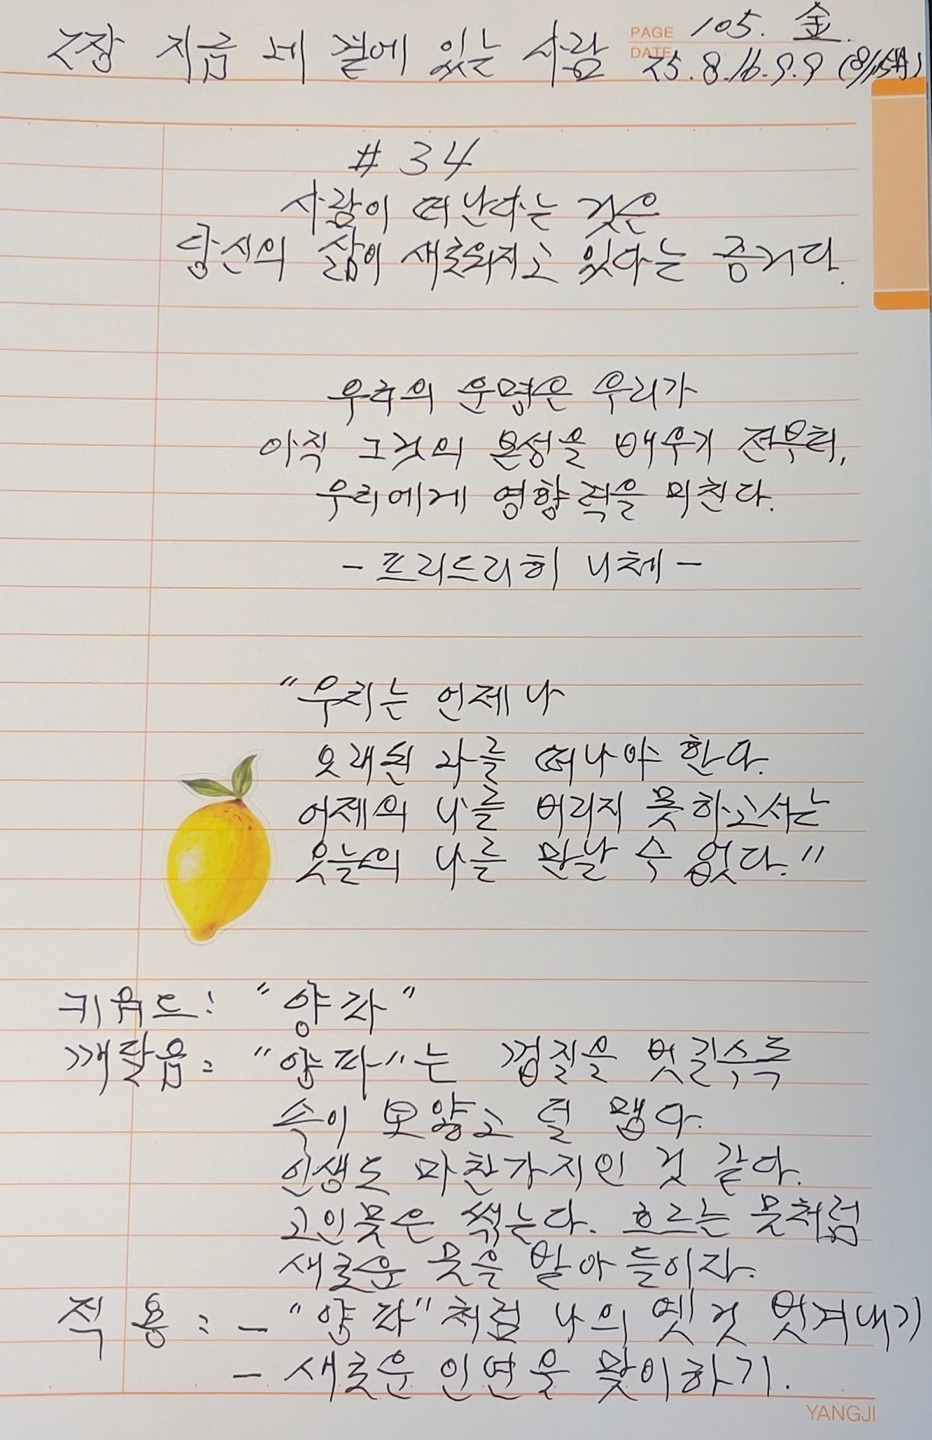 2장 지금 네 곁에 있는 사람
PAGE 105. 金.
DATE 25.8.16.9.9
# 34
사람이 떠난다는 것은
당신의 삶이 새로워지고 있다는 증거다.
우주의 운명은 우리가
아직 그것의 본성을 배우기 전부터,
우리에게 영향력을 미친다.
- 프리드리히 니체 -
"우리는 언제나
오래된 나를 떠나야 한다.
어제의 나를 버리지 못하고서는
오늘의 나를 만날 수 없다."
키워드: "양파"
깨달음: "양파"는 껍질을 벗길수록
속이 뽀얗고 덜 맵다.
인생도 마찬가지인 것 같다.
고인물은 썩는다. 흐르는 물처럼
새로운 물을 받아 들이자.
적 용: - "양파"처럼 나의 옛것 벗겨내기
- 새로운 인연을 맞이하기.
YANGJI